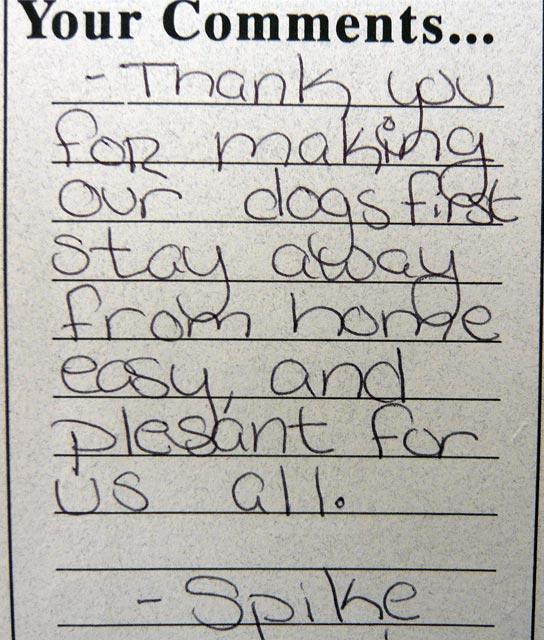 Your Comments...
- Thank you
for making
our dogs first
stay away
from home
easy, and
plesant for
us all.
- Spike